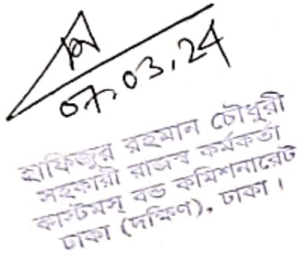 07.03.24
হাফিজুর রহমান চৌধুরী
সহকারী রাজস্ব কর্মকর্তা
কাস্টমস্ বন্ড কমিশনারেট
ঢাকা (দক্ষিণ), ঢাকা।